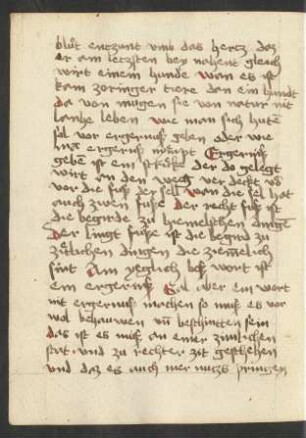 blůt entzunt vmb das hercz daz
er am letzsten bey nahent gleich
wirt einem hunde wan es ist
kam zorniger tiere dan ein hundt
da von mugen sie von natur nit
lanhe leben wie man sich huten
sol vor ergernuß geben oder wie
man ergernuß Ergernuß
geben ist ein der do gelegt
wirt an den weg ver deckt
vor die fuß der sell wan die sel hat
auch zwen fusse der recht fuß ist
die begirde zu hiemelschen dingen
Der lingk fusse ist die begird zu
zittlichen dingen die ziemelich
sint Am yeglich boß wort ist
ein ergernuß Sal aber ein wort
nit ergernuß machen so muß es vor
wol behauwen vn beschnitten sein
das ist es muß an einer zimlichen
stat vnd zu rechter zit geschehen
vnd daz es auch mer nuczs pringen